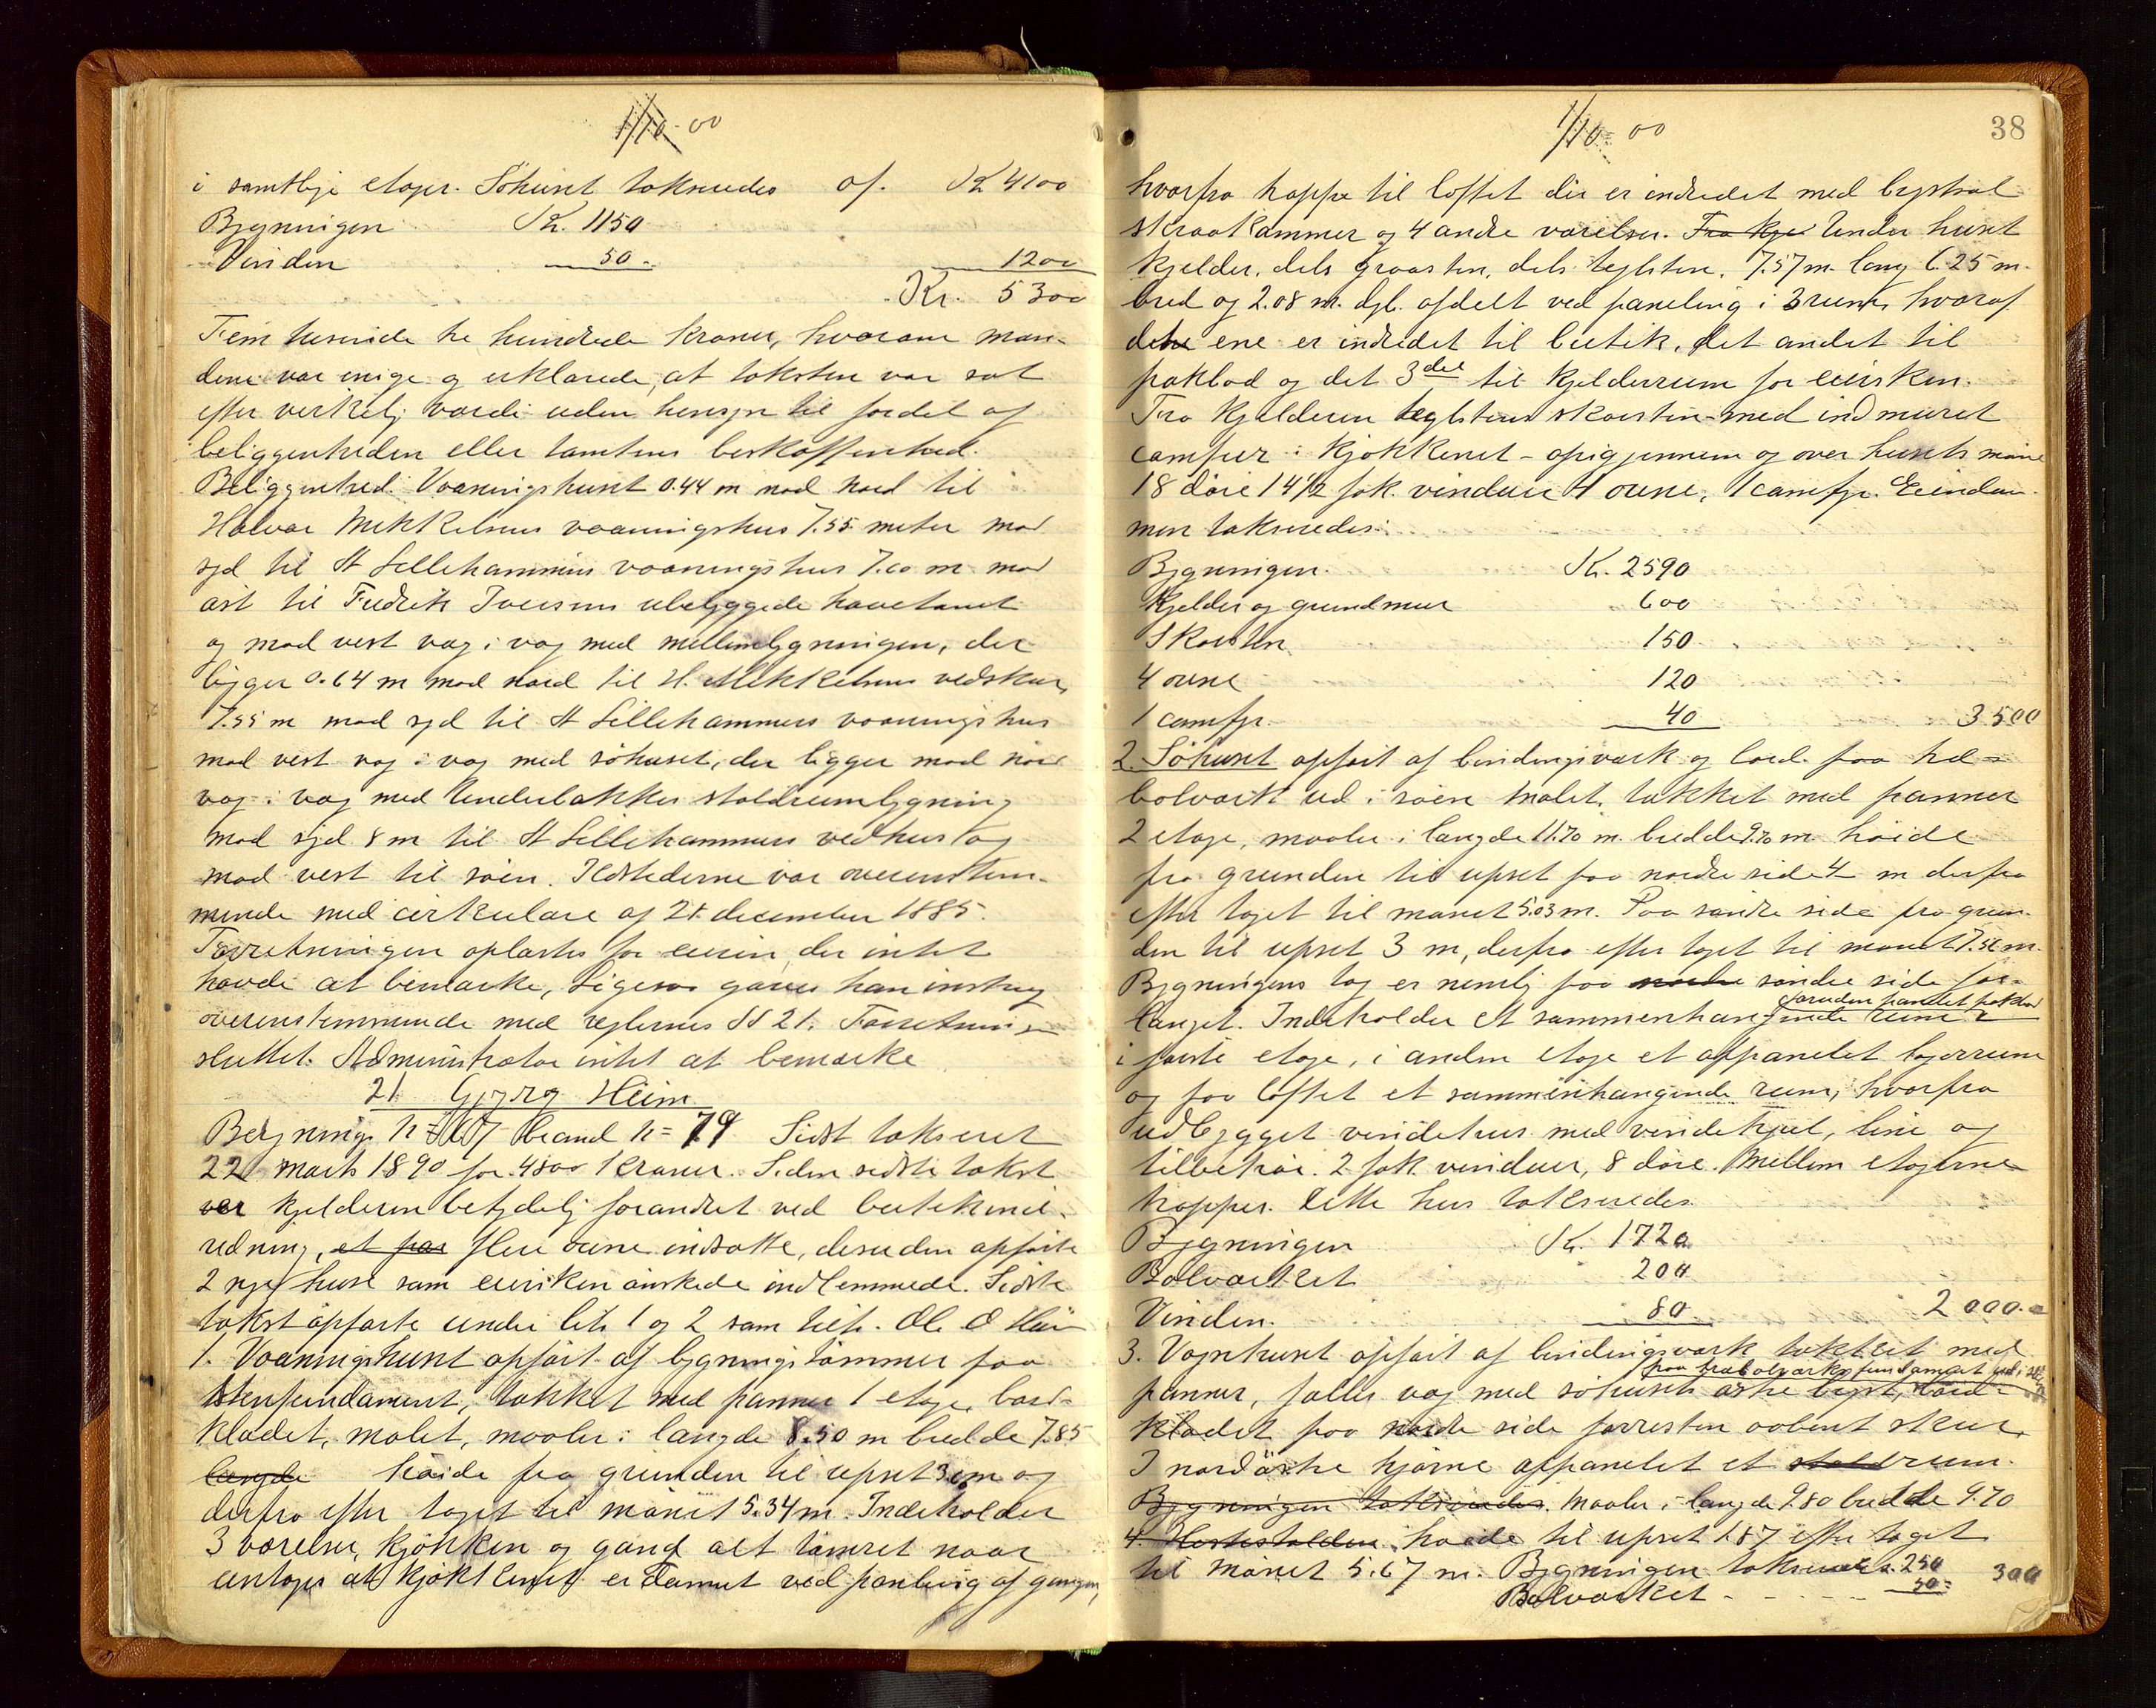 1/10-00
i samtlige etager. Söhuset takseredes af. Kr 4100
Bygningen Kr. 1150
Vinden 50- 1200
Kr. 5300
Fem tusinde tre hundrede kroner, hvorom mæn-
dene var enige og erklærede, at taksten var sat
efter virkelig værdi uden hensyn til fordel af
beliggenheden eller tomtens beskaffenhed.
Beliggenhed. Vaaningshuset 0.44 m mod nord til
Halvor Mikkelsens vaaningshus 7.55 meter mod
syd til A Lillehammers vaaningshus 7.60 m mod
öst til Fredrik Iversens ubebyggede havetomt
og mod vest væg i væg med mellembygningen, der
ligger 0.64 m mod nord til H. Mikkelsens vedskur,
7.55 m mod syd til A Lillehammers vaaningshus
mod vest væg i væg med söhuset, der ligger mod nord
væg i væg med Underbakkes staldrumbygning
mod syd 8 m til A Lillehammers vedhus og
mod vest til söen. Ildstederne var overenstem-
mende med cirkulære af 21 december 1885.
Forretningen oplæstes for eieren, der intet
havde at bemærke, Ligesaa gaves han instrux
overenstemmende med reglernes § 21. Forretningen
sluttet. Administrator intet at bemærke
21 Georg Heim
Bebygnings n= brand n= 79 Sidst takseret
22 marts 1890 for 4800 kroner. Siden sidste takst
var kjelderen betydelig forandret ved butikind-
redning, et par flere ovne indsatte, desuden opförte
2 nye huse som eieren önskede indlemmede. Sidste
takst opförte under litr. 1 og 2 som tilh. Ole O Heim
1. Vaaningshuset opfört af bygningstömmer paa
stenfundament, takket med panner 1 etage, bord-
klædet, malet, maaler i længde 8.50 m bredde 7.85
længde höide fra grunden til upset 3 m og
derfra efter taget til mönet 5.34 m. Indeholder
3 værelser, kjökken og gang alt tömret naar
untages at kjökkenet er dannet ved paneling af gangen,
1/10-00
38
hvorfra trappe til loftet der er indredet med bystræt
skraakammer og 4 andre værelser. Fra kje Under huset
kjelder, dels graasten, dels teglsten, 7.57 m lang 6.25 m
bred og 2.08 m. dyb. afdelt ved paneling i 3 rum, hvoraf
det ene er indredet til butik, det andet til
pakbod og det 3die til kjelderrum for eieren.
Fra kjelderen teglstens skorsten med indmuret
comfur i kjökkenet - opigjennem og over husets möne
18 döre 14½ fak. vinduer 4 ovne, 1 comfyr. Eiendom-
men takseredes:
Bygningen. Kr. 2590
kjelder og grundmur 600
Skorsten 150
4 ovne 120
1 comfyr. 40 3500
2. Söhuset opfört af bindingsværk og bord. paa træ-
bolværk ud i söen malet. takket med panner
2 etage, maaler i længde 11.70 m. bredde 9.70 m höide
fra grunden til upset paa nordre side 4 m derfra
efter taget til mönet 5.03 m. Paa söndre side fra grun-
den til upset 3 m, derfra efter taget til mönet 7.56 m.
Bygningens tag er nemlig paa nordre söndre side for-
længet. Indeholder et sammenhængende rum foruden panelet pakbod
i förste etage, i anden etage et afpanelet lagerrum
og paa loftet et sammenhængende rum, hvorfra
udbygget vindehus med vindehjul, line og
tilbehör. 2 fak. vinduer, 8 döre. Mellem etagerne
trapper. Dette hus takseredes.
Bygningen Kr. 1720
Bolværket 200
Vinden. 80 2000.-
3. Vognhuset opfört af bindingsværk takket med
paa træbolværks fundament ud i sö
panner, fælles væg med söhusets östre bygt, bord-
klædet paa nordre side forresten aabent skur.
I nordöstre hjörne afpanelet et staldrum.
Bygningen takseredes. Maaler i længde 9.80 bredde 9.70
4. Hestestalden. höide til upset 1.87 efter taget
til mönet 5.67 m. Bygningen takseredes. 250
Bolværket - 50- 300